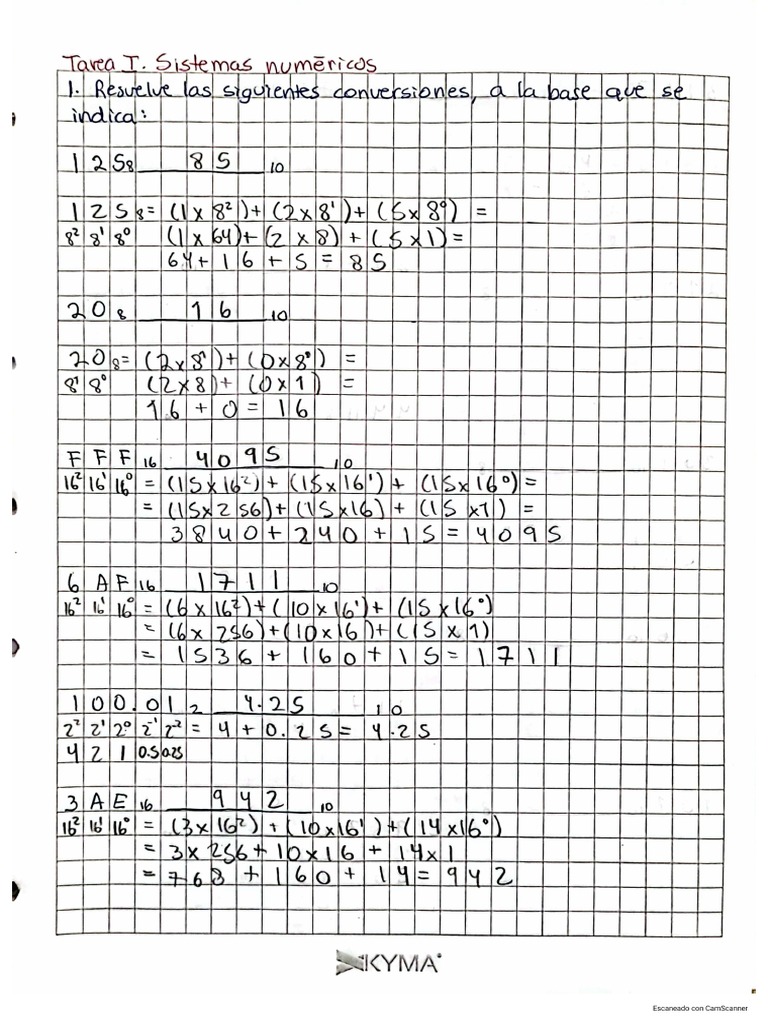 Tarea I. Sistemas numéricos
1. Resuelve las siguientes conversiones, a la base que se
indica:
125₈ 85 ₁₀
125₈ = (1 x 8²) + (2 x 8¹) + (5 x 8⁰) =
8² 8¹ 8⁰ (1 x 64) + (2 x 8) + (5 x 1) =
64 + 16 + 5 = 85
20₈ 16 ₁₀
20₈ = (2 x 8¹) + (0 x 8⁰) =
8¹ 8⁰ (2 x 8) + (0 x 1) =
16 + 0 = 16
FFF₁₆ 4095 ₁₀
16² 16¹ 16⁰ = (15 x 16²) + (15 x 16¹) + (15 x 16⁰) =
= (15 x 256) + (15 x 16) + (15 x 1) =
3840 + 240 + 15 = 4095
6AF₁₆ 1711 ₁₀
16² 16¹ 16⁰ = (6 x 16²) + (10 x 16¹) + (15 x 16⁰)
= (6 x 256) + (10 x 16) + (15 x 1)
= 1536 + 160 + 15 = 1711
100.01₂ 4.25 ₁₀
2² 2¹ 2⁰ 2⁻¹ 2⁻² = 4 + 0.25 = 4.25
4 2 1 0.5 0.25
3AE₁₆ 942 ₁₀
16² 16¹ 16⁰ = (3 x 16²) + (10 x 16¹) + (14 x 16⁰)
= 3 x 256 + 10 x 16 + 14 x 1
= 768 + 160 + 14 = 942
KYMA
Escaneado con CamScanner